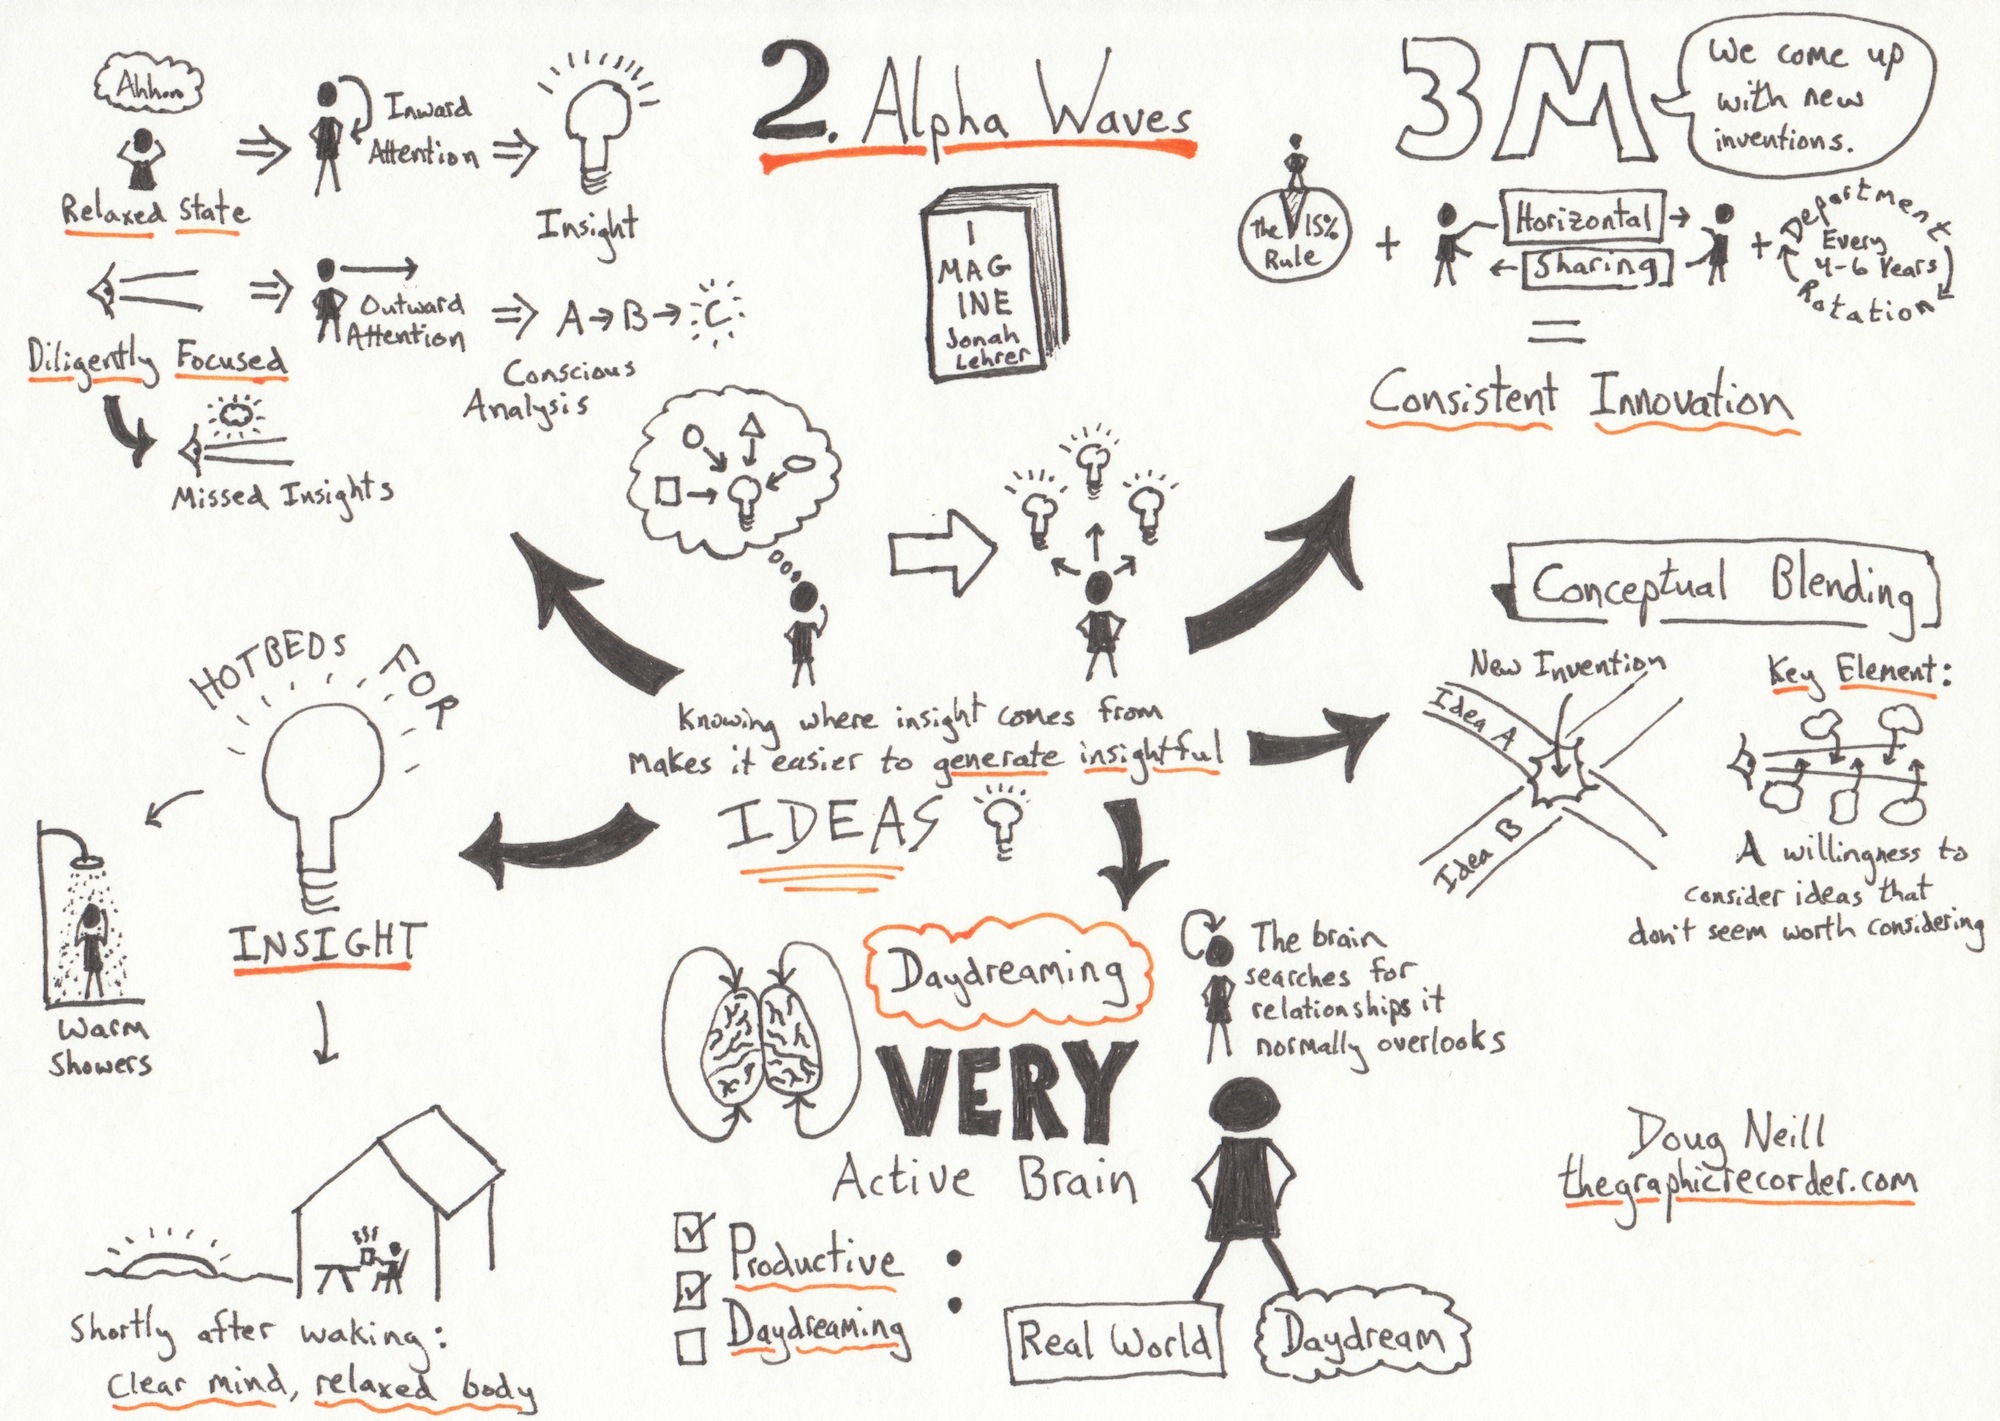 2. Alpha Waves
I
MAG
INE
Jonah
Lehrer
Ahhhh
Relaxed State
Inward
Attention
Insight
Diligently Focused
Outward
Attention
A → B → C
Conscious
Analysis
Missed Insights
3M
We come up
with new
inventions.
The 15%
Rule
+
Horizontal
Sharing
+
Department
Every
4-6 Years
Rotation
=
Consistent Innovation
Knowing where insight comes from
makes it easier to generate insightful
IDEAS
Conceptual Blending
New Invention
Idea A
Idea B
Key Element:
A willingness to
consider ideas that
don't seem worth considering
HOTBEDS FOR
INSIGHT
Warm
Showers
Shortly after waking:
clear mind, relaxed body
Daydreaming
VERY
Active Brain
The brain
searches for
relationships it
normally overlooks
Productive
Daydreaming :
Real World
Daydream
Doug Neill
thegraphicrecorder.com